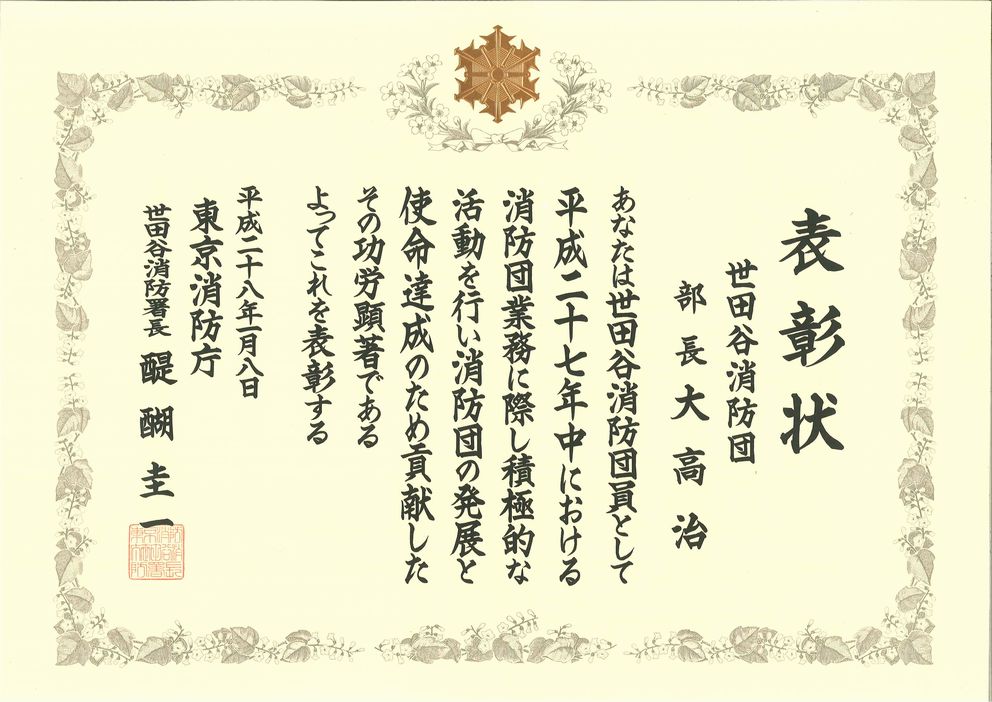 表彰状
世田谷消防団
部長 大高治
あなたは世田谷消防団員として
平成二十七年中における
消防団業務に際し積極的な
活動を行い消防団の発展と
使命達成のため貢献した
その功労顕著である
よってこれを表彰する
平成二十八年一月八日
東京消防庁
世田谷消防署長 醍醐圭一